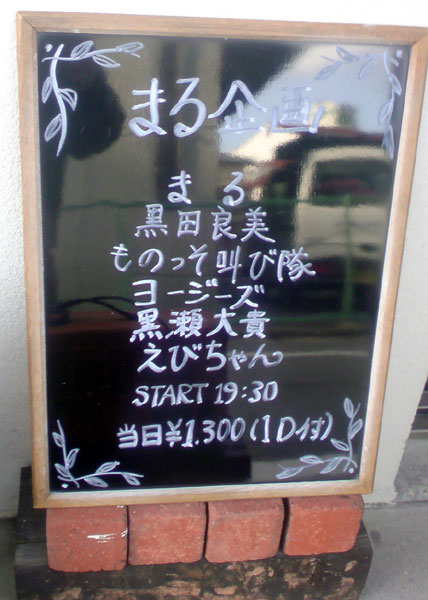 まる企画
まる
黒田良美
ものっそ叫び隊
ヨージーズ
黒瀬大貴
えびちゃん
START 19:30
当日¥1.300(1D付)